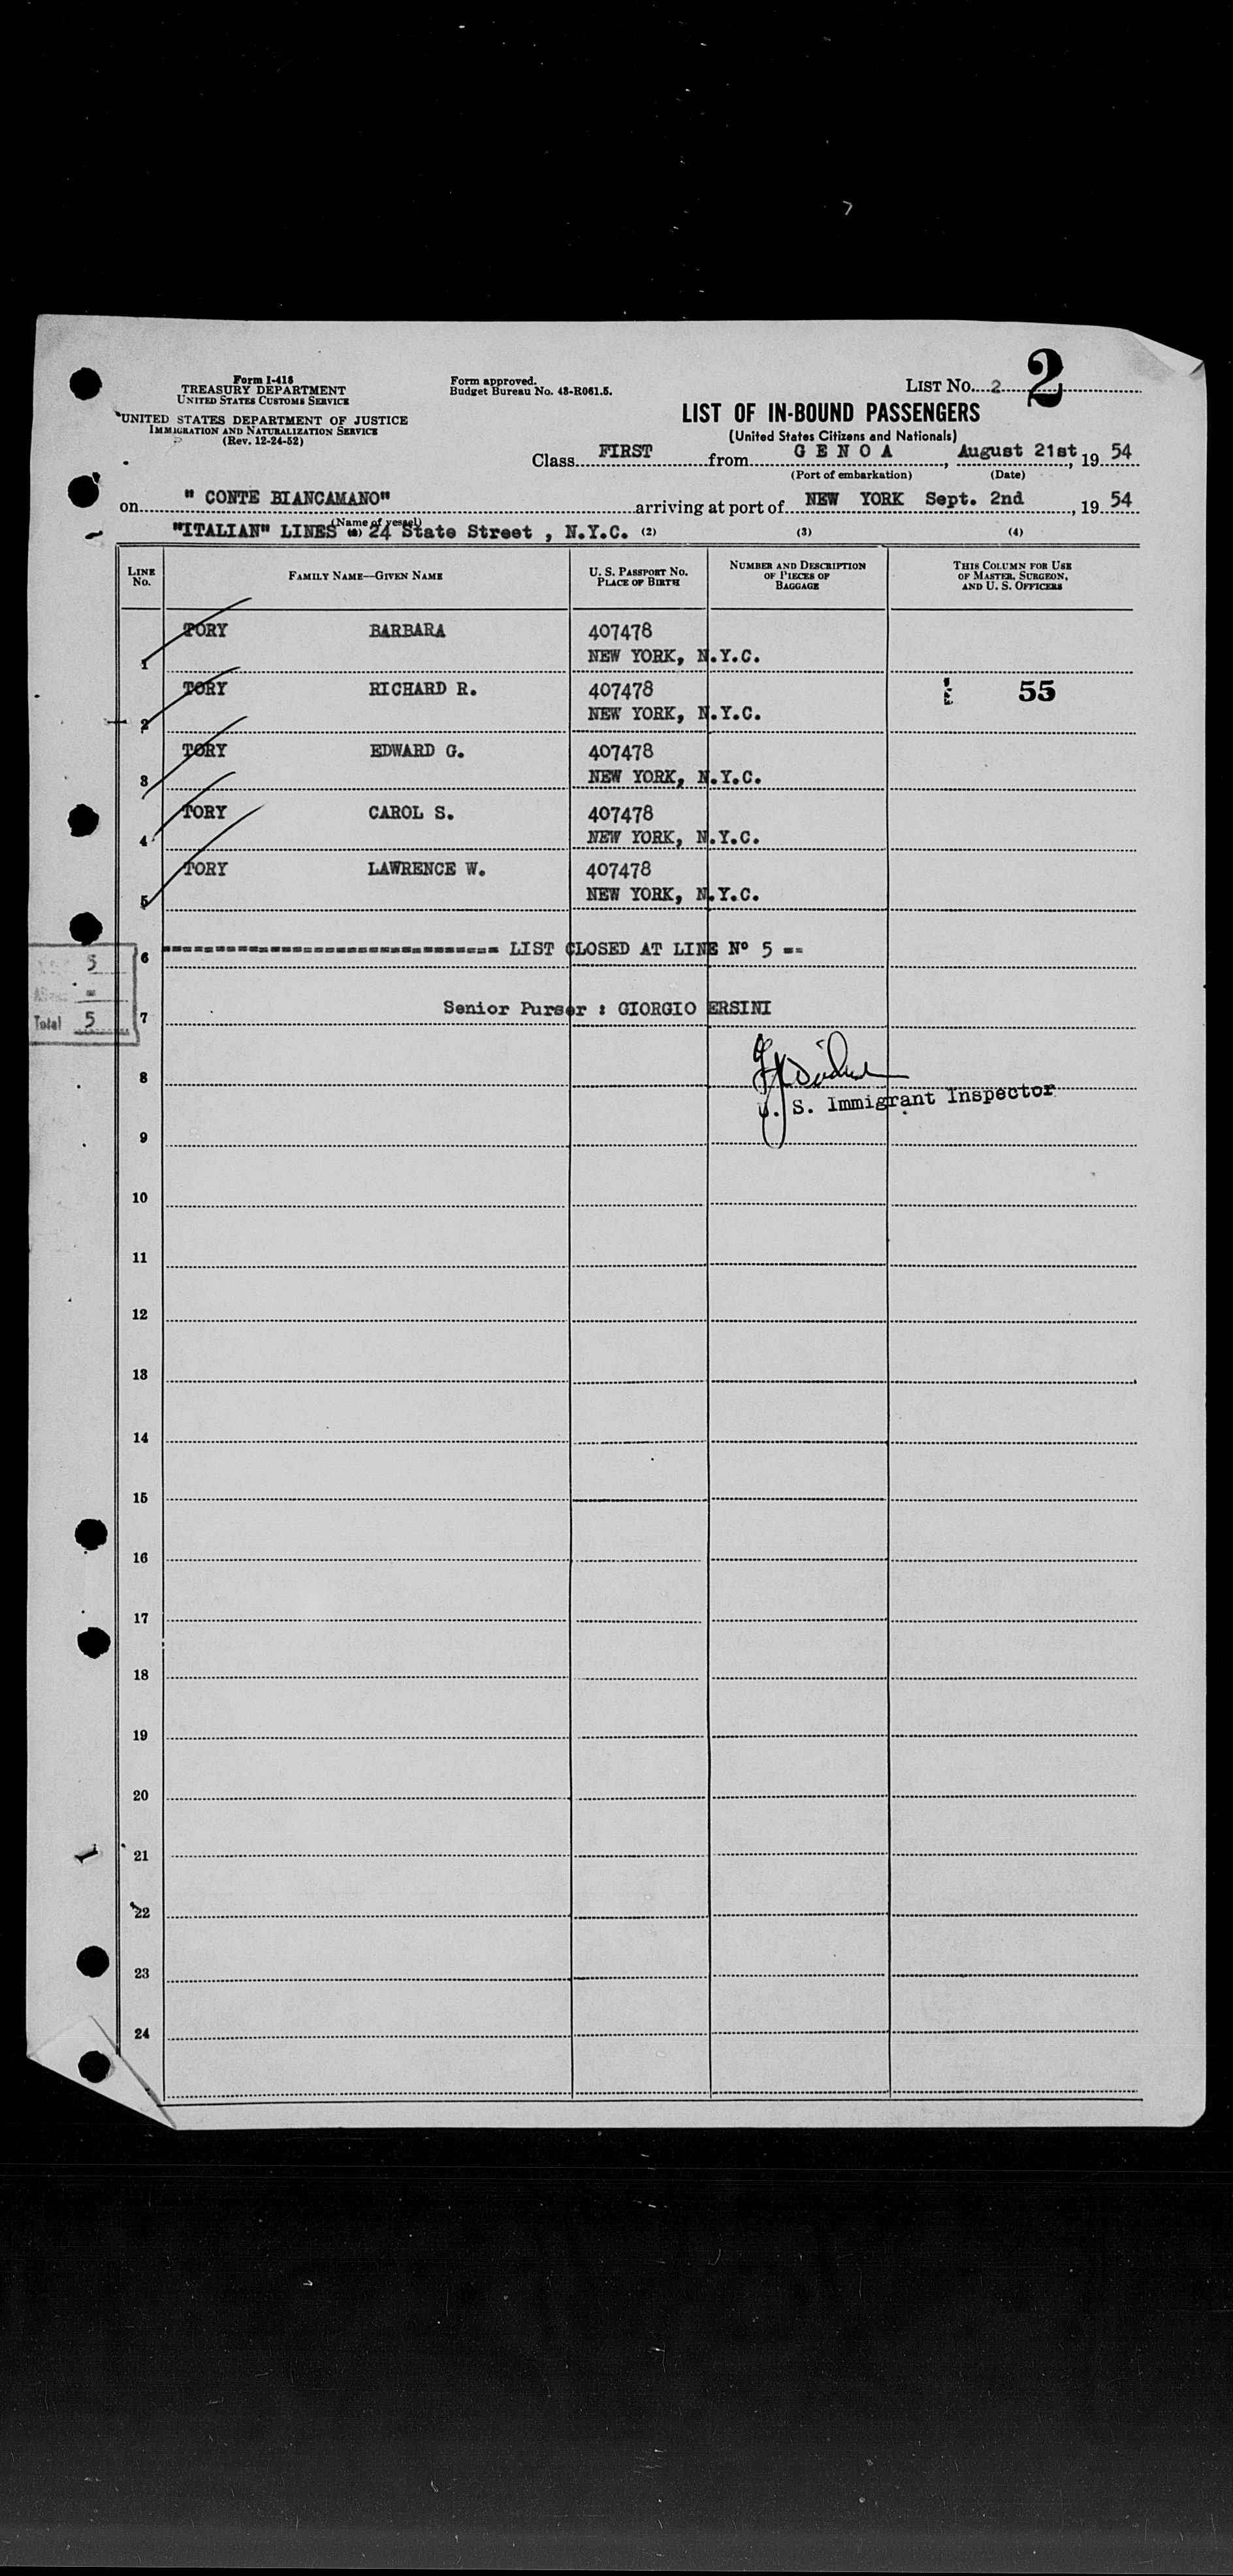 Form I-418
TREASURY DEPARTMENT
UNITED STATES CUSTOMS SERVICE
UNITED STATES DEPARTMENT OF JUSTICE
IMMIGRATION AND NATURALIZATION SERVICE
(Rev. 12-24-52)
Form approved.
Budget Bureau No. 43-R061.5.
LIST No. 2 2
LIST OF IN-BOUND PASSENGERS
(United States Citizens and Nationals)
Class FIRST from G E N O A, August 21st, 19 54
(Port of embarkation) (Date)
on " CONTE BIANCAMANO" arriving at port of NEW YORK Sept. 2nd, 19 54
(Name of vessel)
"ITALIAN" LINES 24 State Street , N.Y.C. (2) (3) (4)
LINE No. FAMILY NAME—GIVEN NAME U. S. PASSPORT NO. PLACE OF BIRTH NUMBER AND DESCRIPTION OF PIECES OF BAGGAGE THIS COLUMN FOR USE OF MASTER, SURGEON, AND U. S. OFFICERS
1 TORY BARBARA 407478
NEW YORK, N.Y.C.
2 TORY RICHARD R. 407478 55
NEW YORK, N.Y.C.
3 TORY EDWARD G. 407478
NEW YORK, N.Y.C.
4 TORY CAROL S. 407478
NEW YORK, N.Y.C.
5 TORY LAWRENCE W. 407478
NEW YORK, N.Y.C.
5
-
Total 5
6 ============================= LIST CLOSED AT LINE Nº 5 ==
7 Senior Purser : GIORGIO ERSINI
8
U. S. Immigrant Inspector
9
10
11
12
13
14
15
16
17
18
19
20
21
22
23
24